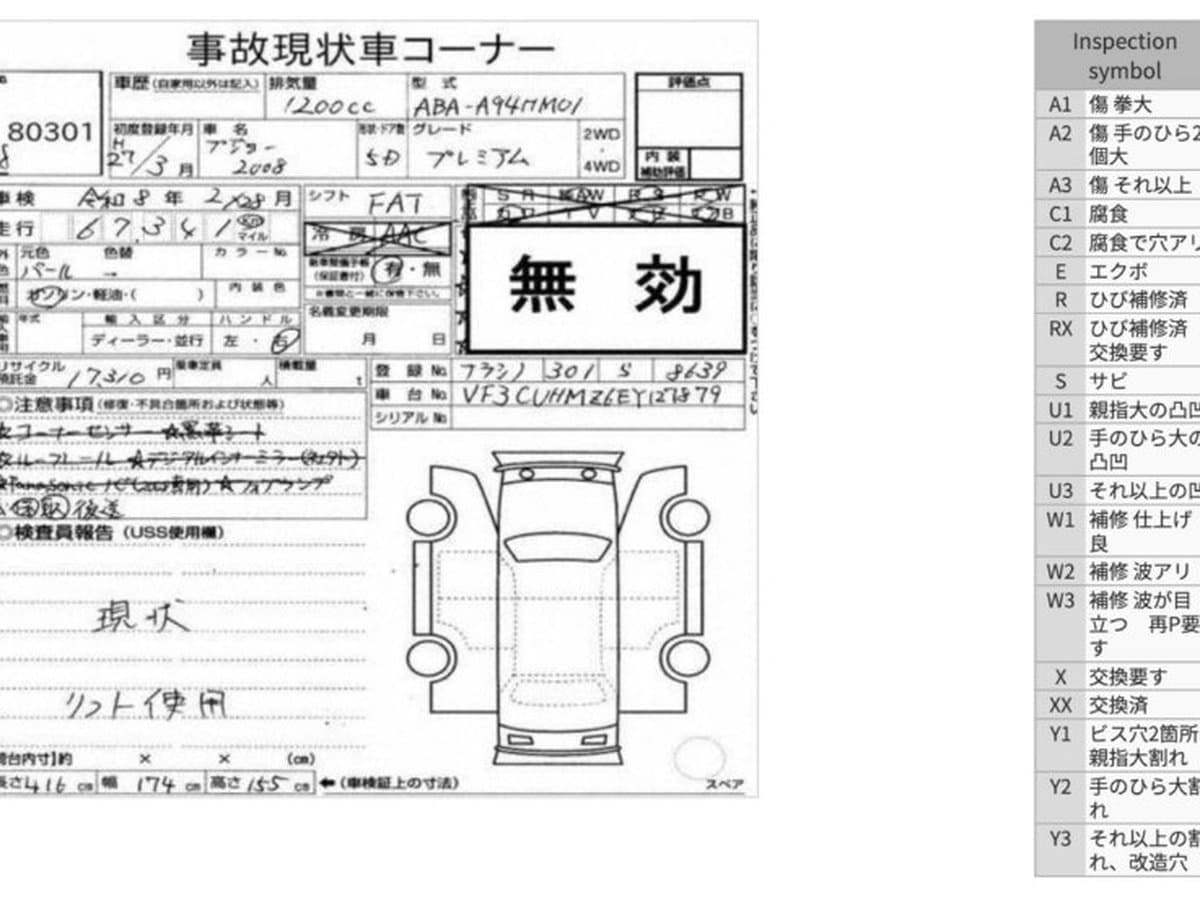 事故現状車コーナー
車歴(自家用以外は記入) 排気量 型 式 評価点
1200cc
80301
初度登録年月 車 名 形状・ドア数 グレード 2WD
H 27/3月 プジョー 2008 5D プレミアム ・ 4WD
内 装 補助評価
車検 令和8年2/28月 シフト FAT
走行 67,341 km マイル 冷 房 AAC
元色 色替 カラーNo.
パール → (保証書付) 有・無
ガソリン・軽油・( ) 内 装 色
※書類と一緒に保管下さい。
無 効
年式 輸 入 区 分 ハ ン ド ル 名義変更期限
ディーラー・並行 左・右 月 日
リサイクル預託金 17,310円 乗車定員 人 積載量 t
登 録 No. 301 8639
車 台 No.
シリアル No.
◎注意事項(修復・不具合箇所および状態等)
コーナーセンサー ☆黒革シート
☆ルーフレール ☆デジタルインナーミラー
後送
◎検査員報告(USS使用欄)
現状
リフト使用
荷台内寸】約 × × (cm)
長さ416cm 幅 174cm 高さ155cm ←(車検証上の寸法)
スペア
Inspection
symbol
A1 傷 拳大
A2 傷 手のひら2
個大
A3 傷 それ以上
C1 腐食
C2 腐食で穴アリ
E エクボ
R ひび補修済
RX ひび補修済
交換要す
S サビ
U1 親指大の凸凹
U2 手のひら大の
凸凹
U3 それ以上の凹
W1 補修 仕上げ
良
W2 補修 波アリ
W3 補修 波が目
立つ 再P要
す
X 交換要す
XX 交換済
Y1 ビス穴2箇所
親指大割れ
Y2 手のひら大割
れ
Y3 それ以上の割
れ、改造穴